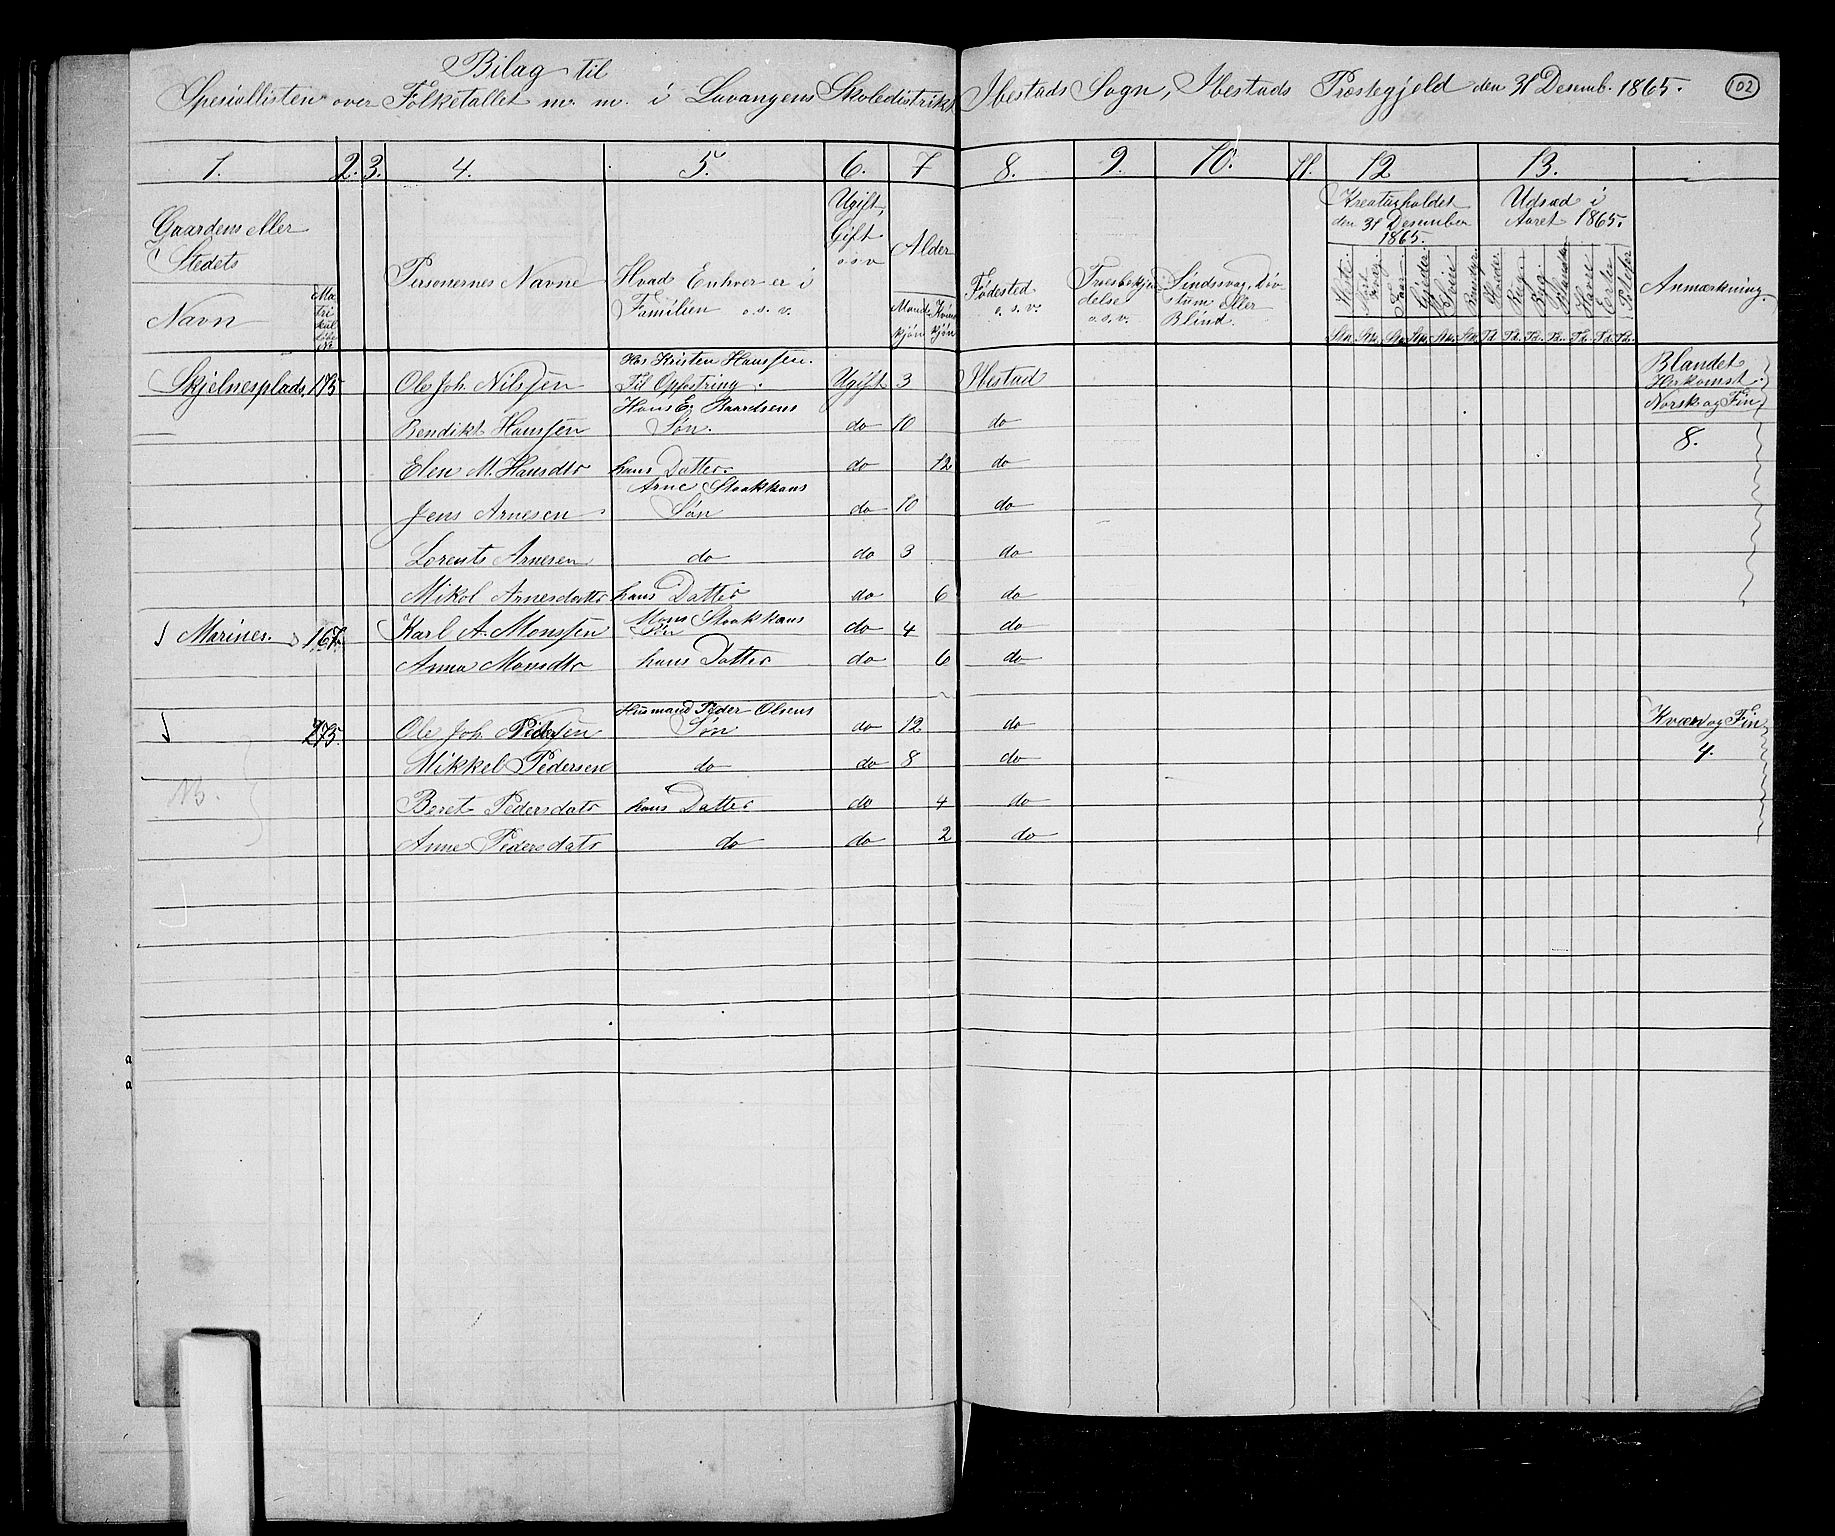 Bilag til
Spesiallisten over Folketallet m. m. i Lavangens Skoledistrikt Ibestads Sogn, Ibestads Præstegjeld den 31 Desemb. 1865. 102
1. 2. 3. 4. 5. 6. 7 8. 9. 10. 11. 12 13.
Gaardens eller
Stedets
Navn
Ma-
tri
kül
Løbe
No
Personernes Navne
Hvad Enhver er i
Familien o. s. v.
Ugift,
Gift
o s v
Alder
Mand-
kjøn
Kvin-
kjøn
Fødested
o. s. v.
Troesbekjen
delse
o. s. v.
Sindssvag, Døv
stum eller
Blind.
Kreaturholdet
den 31 Desember
1865.
Udsæd i
Aaret 1865.
Heste. Stort Kvæg Faar. Gjeder Sviin Rensdyr
Hvede. Rug. Byg. Blandkor Havre Erter Poteter
Stk. Stk. Stk. Stk. Stk. Stk. Td. Td. Td. Td. Td. Td. Td.
Anmærkning.
Hos Kristen Hanssen.
Skjelnesplads. 175 Ole Joh. Nilssen Til Opfostring. Ugift 3 Ibestad Blandet
Herkomst.
Norsk og Fin
8.
Hans E. Baardsens
Bendikt Hanssen Søn. do 10 do
Elen M. Hansdtr hans Datter do 12 do
Arne Staakkans
Jens Arnesen Søn do 10 do
Lorents Arnesen do do 3 do
Mikol Arnesdatter hans Datter do 6 do
Mons Staakkans
Marines. 167. Karl A. Monssen Søn do 4 do
Anna Monsdtr hans Datter do 6 do
Husmand Peder Olsens
275. Ole Joh. Pedersen Søn do 12 do Kvæn og Fin
4.
Mikkel Pedersen do do 8 do
NB.
Beret Pedersdatr hans Datter do 4 do
Anne Pedersdatr do do 2 do
a
a